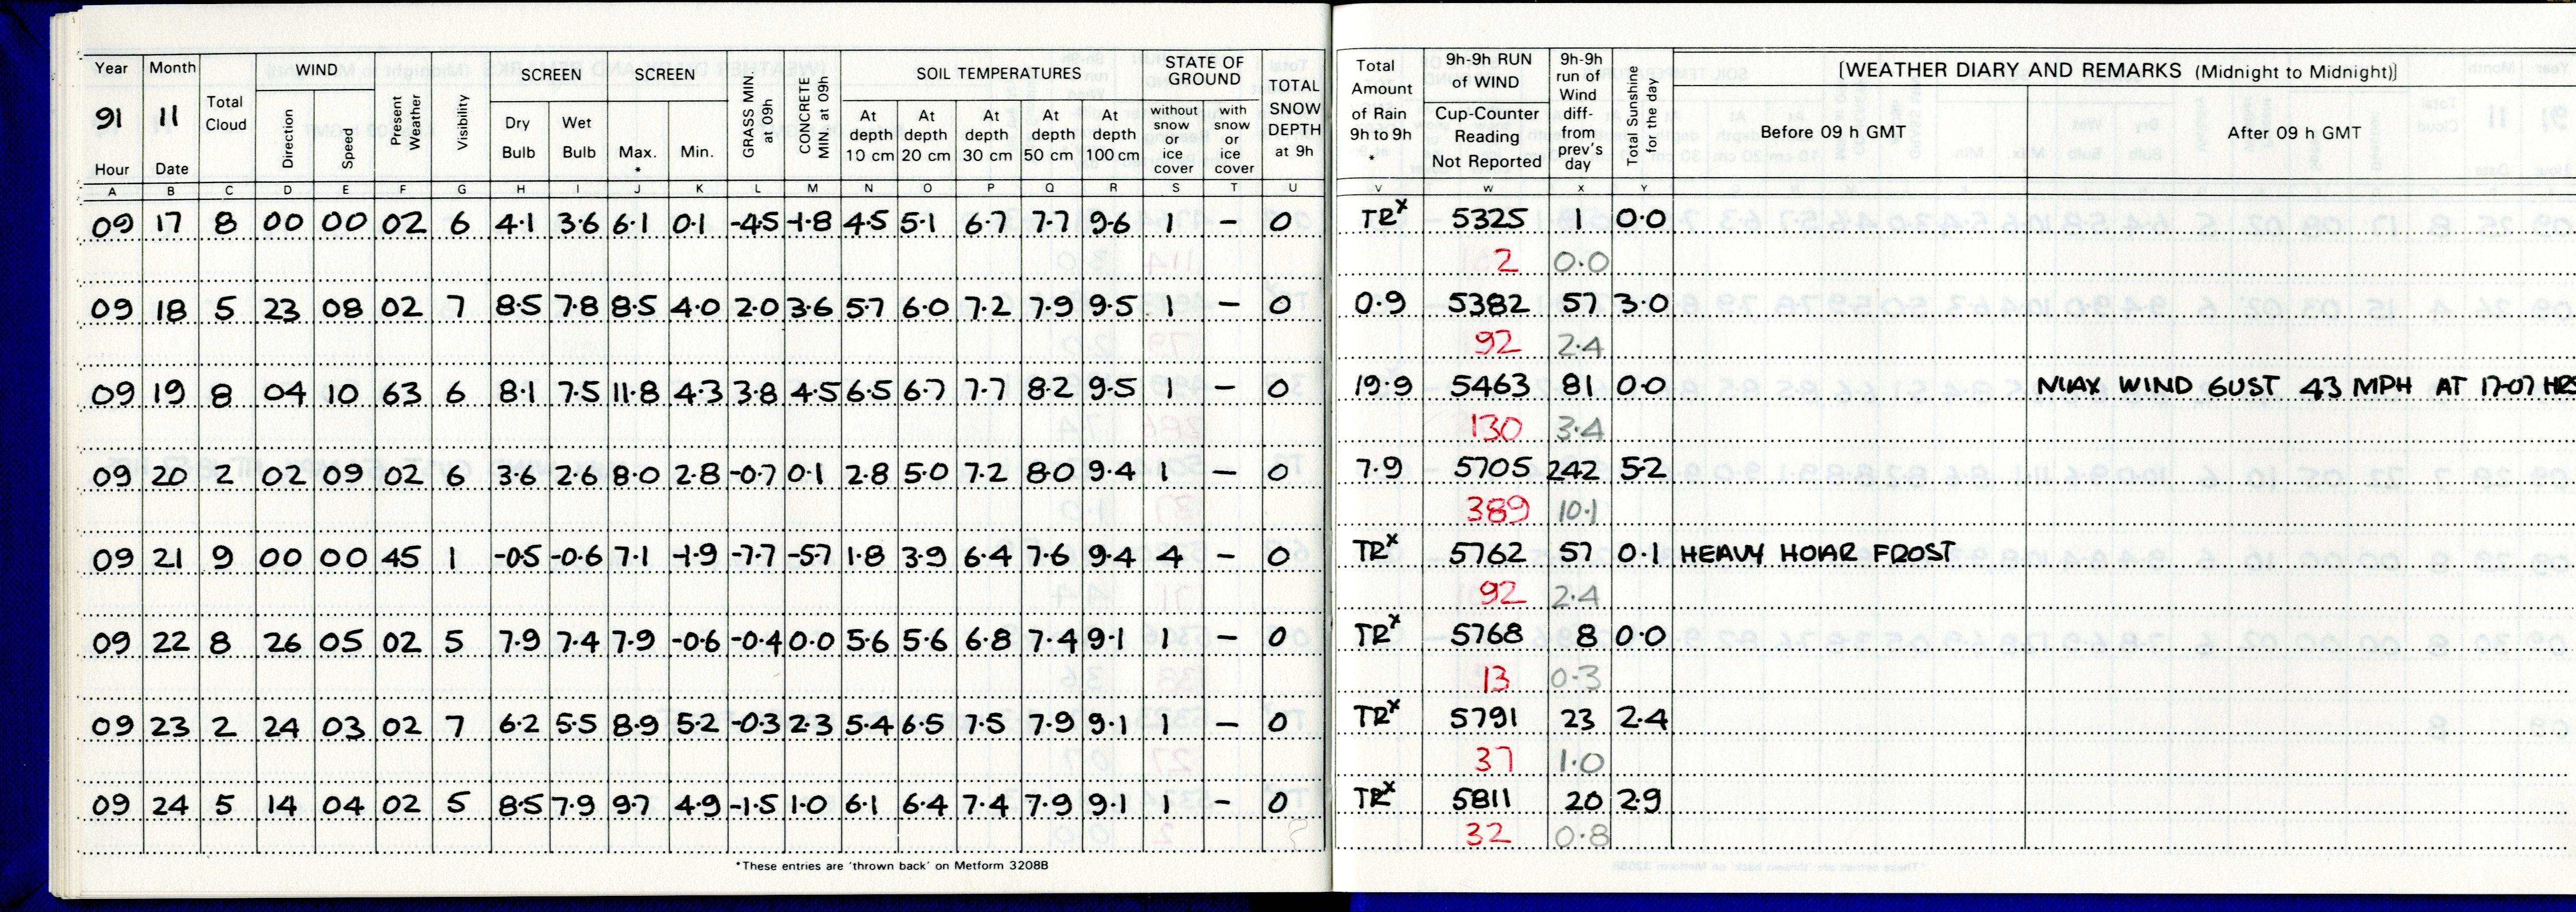 Year Month Total Cloud WIND Present Weather Visibility SCREEN SCREEN GRASS MIN. at 09h CONCRETE MIN. at 09h SOIL TEMPERATURES STATE OF GROUND TOTAL SNOW DEPTH at 9h Total Amount of Rain 9h to 9h * 9h-9h RUN of WIND 9h-9h run of Wind diff- from prev's day Total Sunshine for the day [WEATHER DIARY AND REMARKS (Midnight to Midnight)]
91 11 Direction Speed Dry Bulb Wet Bulb Max. * Min. At depth 10 cm At depth 20 cm At depth 30 cm At depth 50 cm At depth 100 cm without snow or ice cover with snow or ice cover Cup-Counter Reading Not Reported Before 09 h GMT After 09 h GMT
Hour Date
A B C D E F G H I J K L M N O P Q R S T U V W X Y
09 17 8 00 00 02 6 4·1 3·6 6·1 0·1 -4·5 -1·8 4·5 5·1 6·7 7·7 9·6 1 – 0 TRx 5325 1 0·0
2 0·0
09 18 5 23 08 02 7 8·5 7·8 8·5 4·0 2·0 3·6 5·7 6·0 7·2 7·9 9·5 1 – 0 0·9 5382 57 3·0
92 2·4
09 19 8 04 10 63 6 8·1 7·5 11·8 4·3 3·8 4·5 6·5 6·7 7·7 8·2 9·5 1 – 0 19·9 5463 81 0·0 MAX WIND GUST 43 MPH AT 17·07 HRS
130 3·4
09 20 2 02 09 02 6 3·6 2·6 8·0 2·8 -0·7 0·1 2·8 5·0 7·2 8·0 9·4 1 – 0 7·9 5705 242 5·2
389 10·1
09 21 9 00 00 45 1 -0·5 -0·6 7·1 -1·9 -7·7 -5·7 1·8 3·9 6·4 7·6 9·4 4 – 0 TRx 5762 57 0·1 HEAVY HOAR FROST
92 2·4
09 22 8 26 05 02 5 7·9 7·4 7·9 -0·6 -0·4 0·0 5·6 5·6 6·8 7·4 9·1 1 – 0 TRx 5768 8 0·0
13 0·3
09 23 2 24 03 02 7 6·2 5·5 8·9 5·2 -0·3 2·3 5·4 6·5 7·5 7·9 9·1 1 – 0 TRx 5791 23 2·4
37 1·0
09 24 5 14 04 02 5 8·5 7·9 9·7 4·9 -1·5 1·0 6·1 6·4 7·4 7·9 9·1 1 – 0 TRx 5811 20 2·9
32 0·8
*These entries are 'thrown back' on Metform 3208B